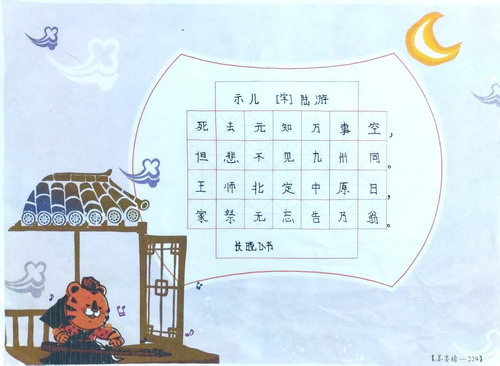 示儿 [宋] 陆游
死去元知万事空,
但悲不见九州同。
王师北定中原日,
家祭无忘告乃翁。
书